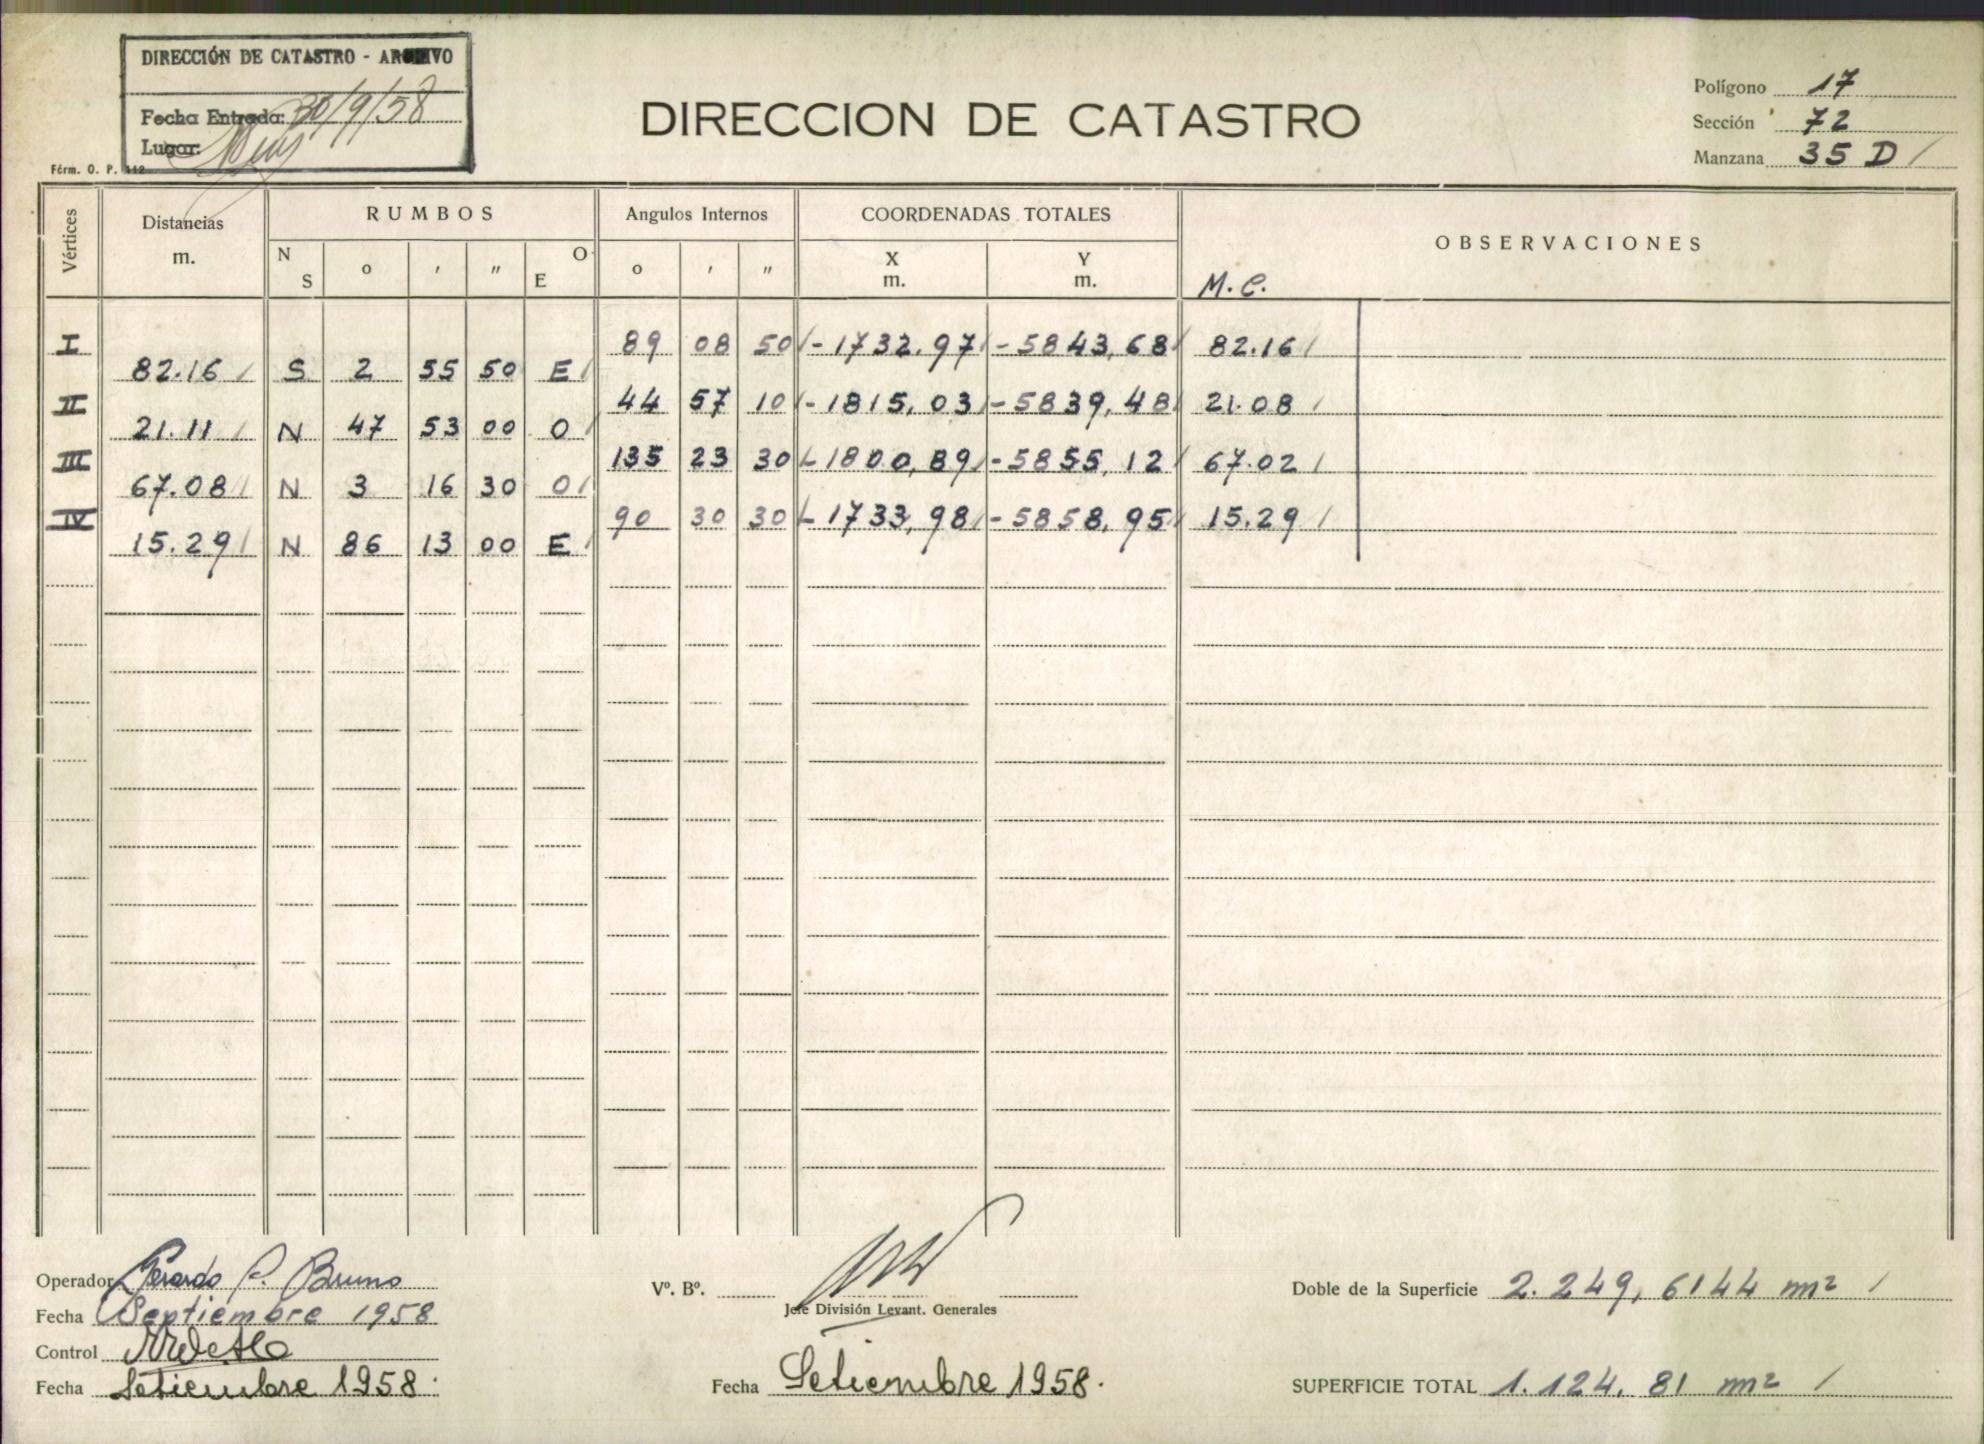 DIRECCIÓN DE CATASTRO - ARCHIVO
Fecha Entrada: 30/9/58
Lugar:
Férm. O. P. 112
DIRECCION DE CATASTRO
Polígono 17
Sección 72
Manzana 35 D /
Vértices Distancias m. RUMBOS Angulos Internos COORDENADAS TOTALES OBSERVACIONES
N S o ' " O E o ' " X m. Y m. M.C.
I 89 08 50 / - 1732.97 / - 5843,68 / 82.16 /
82.16 / S 2 55 50 E /
II 44 57 10 / - 1815,03 / - 5839,48 / 21.08 /
21.11 / N 47 53 00 O /
III 135 23 30 / - 1800,89 / - 5855,12 / 67.02 /
67.08 / N 3 16 30 O /
IV 90 30 30 / - 1733,98 / - 5858,95 / 15.29 /
15.29 / N 86 13 00 E /
Operador Gerardo P. Bruno
Fecha Septiembre 1958
Control
Fecha Setiembre 1958.
Vº. Bº.
Jefe División Levant. Generales
Fecha Setiembre 1958.
Doble de la Superficie 2.249,6144 m² /
SUPERFICIE TOTAL 1.124.81 m² /